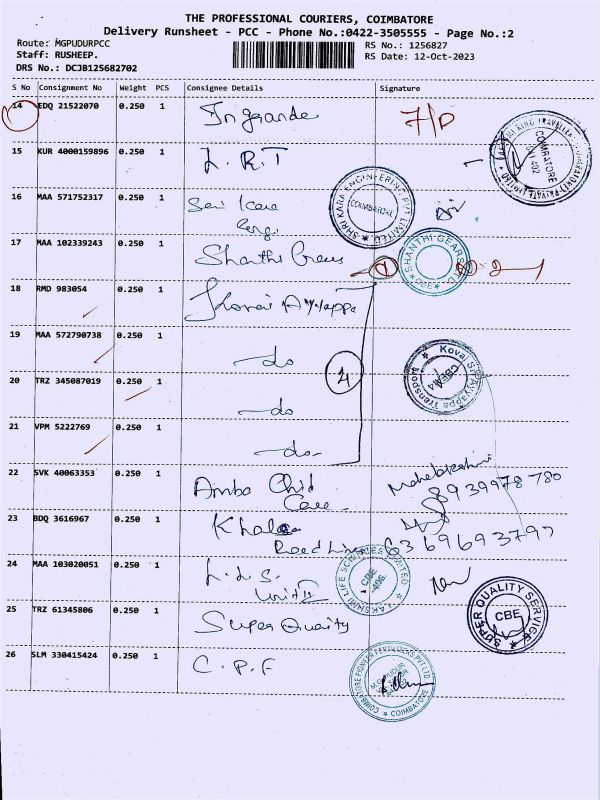 THE PROFESSIONAL COURIERS, COIMBATORE
Delivery Runsheet - PCC - Phone No.:0422-3505555 - Page No.:2
Route: MGPUDURPCC
Staff: RUSHEEP.
DRS No.: DCJB125682702
RS No.: 1256827
RS Date: 12-Oct-2023
S No Consignment No Weight PCS Consignee Details Signature
14 EDQ 21522070 0.250 1
7/D
15 KUR 4000159896 0.250 1 L.R.T
COIMBATORE
16 MAA 571752317 0.250 1 Sri Kara Eengi.
SHRI KARA ENGINEERING PVT LIMITED
COIMBATORE
17 MAA 102339243 0.250 1 Shanthi Grens
SHANTHI GEARS
CBE
18 RMD 983054 0.250 1 Kovai Ayyappa
19 MAA 572790738 0.250 1 do
4
Kovai Sri Ayyappa Transport
20 TRZ 345087019 0.250 1 do
21 VPM 5222769 0.250 1 do
22 SVK 40063353 0.250 1 Ambo Chid Care
8939978780
23 BDQ 3616967 0.250 1 Khalsa Road Lines
6369693797
24 MAA 103020051 0.250 1 L.L.S. Unit II
LAKSHMI LIFE SCIENCES LIMITED
CBE
25 TRZ 61345806 0.250 1 Super Quality
SUPER QUALITY SERVICE
CBE
26 SLM 330415424 0.250 1 C.P.F
COIMBATORE PIONEER FERTILIZERS PVT LTD
COIMBATORE